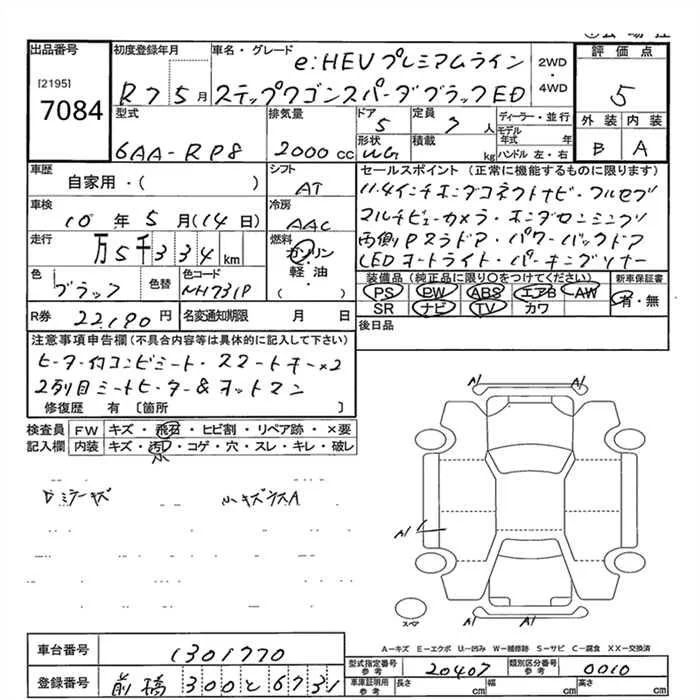 出品番号
[2195]
7084
初度登録年月
R7 5月
車名・グレード
e:HEVプレミアムライン
ステップワゴンスパーダブラックED
2WD・4WD
評価点
5
外装 内装
B A
型式
6AA-RP8
排気量
2000cc
ドア
5
定員
7人
ディーラー・並行
モデル年式 年
形状
WG
積載 kg
ハンドル 左・右
車歴
自家用・( )
シフト
AT
セールスポイント(正常に機能するものに限ります)
11.4インチホンダコネクトナビ・フルセグ
マルチビューカメラ・ホンダセンシング
両側Pスラドア・パワーバックドア
LEDオートライト・パーキングソナー
車検
10年5月(14日)
冷房
AAC
走行
万5千334km
燃料
ガソリン
軽・油
( )
色
ブラック
色替
色コード
NH731P
装備品(純正品に限り○をつけてください)
PS PW ABS エアB AW
SR ナビ TV カワ
新車保証書
有・無
R券
22190円
名変通知期限 月 日
後日品
注意事項申告欄(不具合内容等は具体的に記入して下さい)
ヒーター付コンビシート・スマートキー×2
2列目シートヒーター&オットマン
修復歴 有 [箇所 ]
検査員記入欄
FW キズ・飛石・ヒビ割・リペア跡・×要
内装 キズ・汚レ・コゲ・穴・スレ・キレ・破レ
小
ロミラーキズ
小キズウスA
A1
A1
A1
A1
A1
スペア
A-キズ E-エクボ U-凹み W-補修跡 S-サビ C-腐食 XX-交換済
車台番号
1301770
登録番号
前橋300と6731
型式指定番号 参考
20407
類別区分番号 参考
0010
車庫証明用 参考
長さ cm
幅 cm
高さ cm